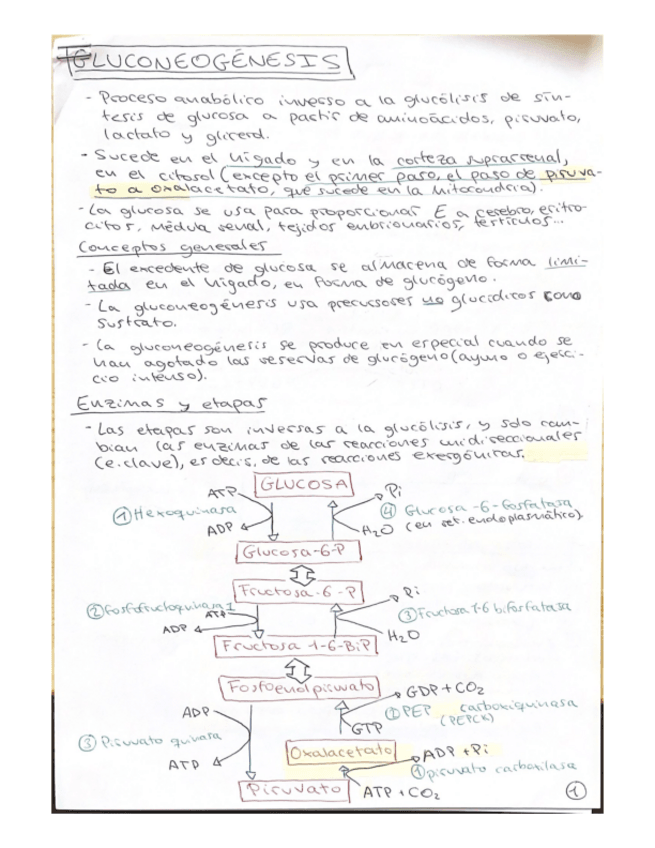 GLUCONEOGÉNESIS
- Proceso anabólico inverso a la glucólisis de sín-
tesis de glucosa a partir de aminoácidos, piruvato,
lactato y glicerol.
- Sucede en el hígado y en la corteza suprarrenal,
en el citosol (excepto el primer paso, el paso de piruva-
to a oxalacetato, que sucede en la mitocondria).
- La glucosa se usa para proporcionar E a cerebro, eritro-
citos, médula renal, tejidos embrionarios, testículos...
Conceptos generales
- El excedente de glucosa se almacena de forma limi-
tada en el hígado, en forma de glucógeno.
- La gluconeogénesis usa precursores no glucídicos como
sustrato.
- La gluconeogénesis se produce en especial cuando se
han agotado las reservas de glucógeno (ayuno o ejerci-
cio intenso).
Enzimas y etapas
- Las etapas son inversas a la glucólisis, y solo cam-
bian las enzimas de las reacciones unidireccionales
(e. clave), es decir, de las reacciones exergónicas.
GLUCOSA
ATP
Pi
① Hexoquinasa
④ Glucosa-6-fosfatasa
ADP
H₂O
(en ret. endoplasmático)
Glucosa-6-P
Fructosa-6-P
Pi
② Fosfofructoquinasa 1
ATP
③ Fructosa 1-6 bifosfatasa
ADP
H₂O
Fructosa 1-6-BiP
Fosfoenolpiruvato
GDP + CO₂
ADP
② PEP carboxiquinasa
(PEPCK)
GTP
③ Piruvato quinasa
Oxalacetato
ADP + Pi
ATP
① piruvato carboxilasa
Piruvato
ATP + CO₂
①